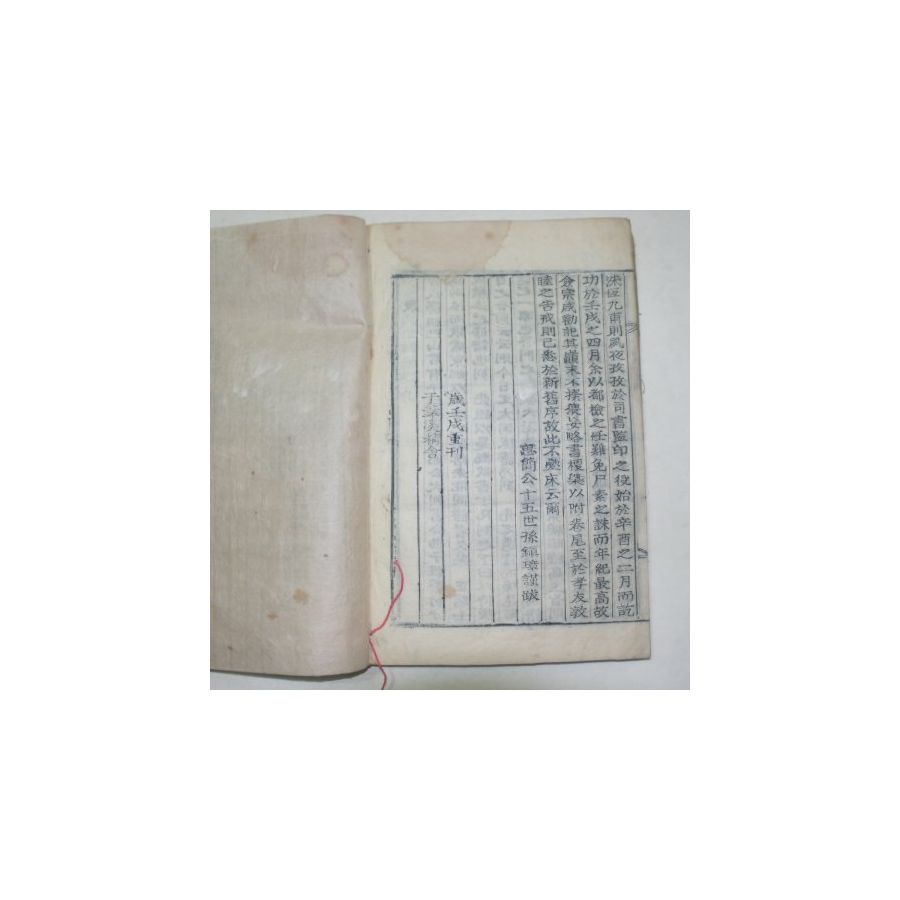 洙恒九甫則夙夜孜孜於司書監印之役始於辛酉之二月而訖
功於壬戌之四月余以都檢之任難免尸素之誅而年紀最高故
僉宗咸勸記其顚末不揆僣妄略書榎槩以附卷尾至於孝友敦
睦之告戒則已悉於新舊序故此不疊床云爾
簡公十五世孫鎭璋謹跋
歲壬戌重刊
于 溪精舍